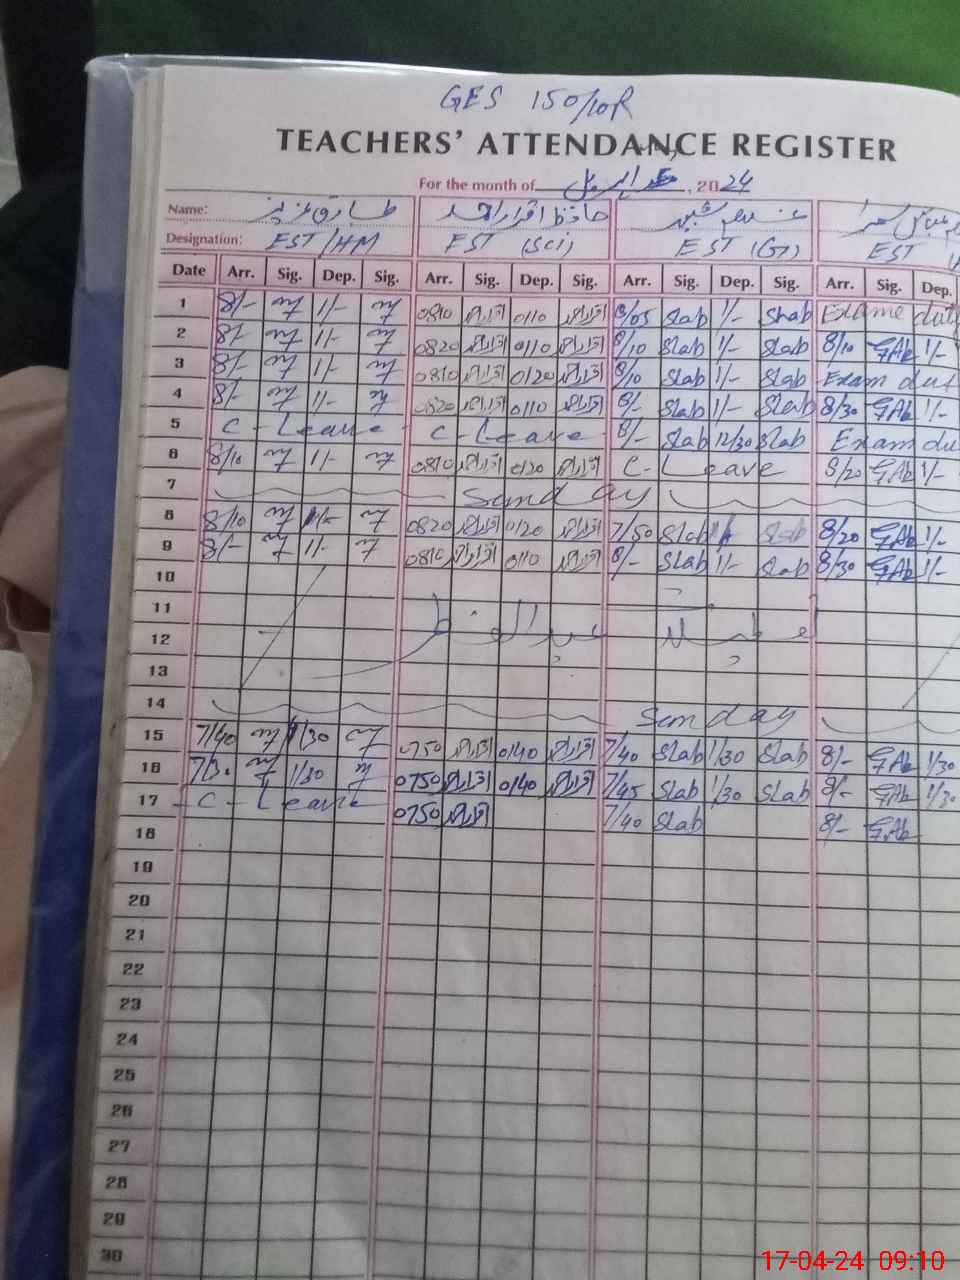 GES 150/10R
TEACHERS' ATTENDANCE REGISTER
For the month of اپریل , 2024
Name: طارق عزیز حافظ اقرار احمد
Designation: EST/HM EST (Sci) EST (G) EST
Date Arr. Sig. Dep. Sig. Arr. Sig. Dep. Sig. Arr. Sig. Dep. Sig. Arr. Sig. Dep.
1 8/- 1/- 0810 0110 8/05 Slab 1/- Shab Exame duty
2 8/- 1/- 0820 0110 8/10 Slab 1/- Slab 8/10 GAb 1/-
3 8/- 1/- 0810 0120 8/10 Slab 1/- Slab Exam dut
4 8/- 1/- 0820 0110 8/- Slab 1/- Slab 8/30 GAb 1/-
5 C-Leave C-Leave 8/- Slab 12/30 Slab Exam du
6 8/10 1/- 0810 0120 C-Leave 8/20 GAb 1/-
7 Sunday
8 8/10 1/- 0820 0120 7/50 Slab Slab 8/20 GAb 1/-
9 8/- 1/- 0810 0110 8/- Slab 1/- Slab 8/30 GAb 1/-
10
11
12 عید الفطر
13
14 Sunday
15 7/40 1/30 0750 0140 7/40 Slab 1/30 Slab 8/- GAb 1/30
16 7/30 1/30 0750 0140 7/45 Slab 1/30 Slab 8/- GAb 1/30
17 C-Leave 0750 7/40 Slab 8/- GAb
18
19
20
21
22
23
24
25
26
27
28
29
30
17-04-24 09:10